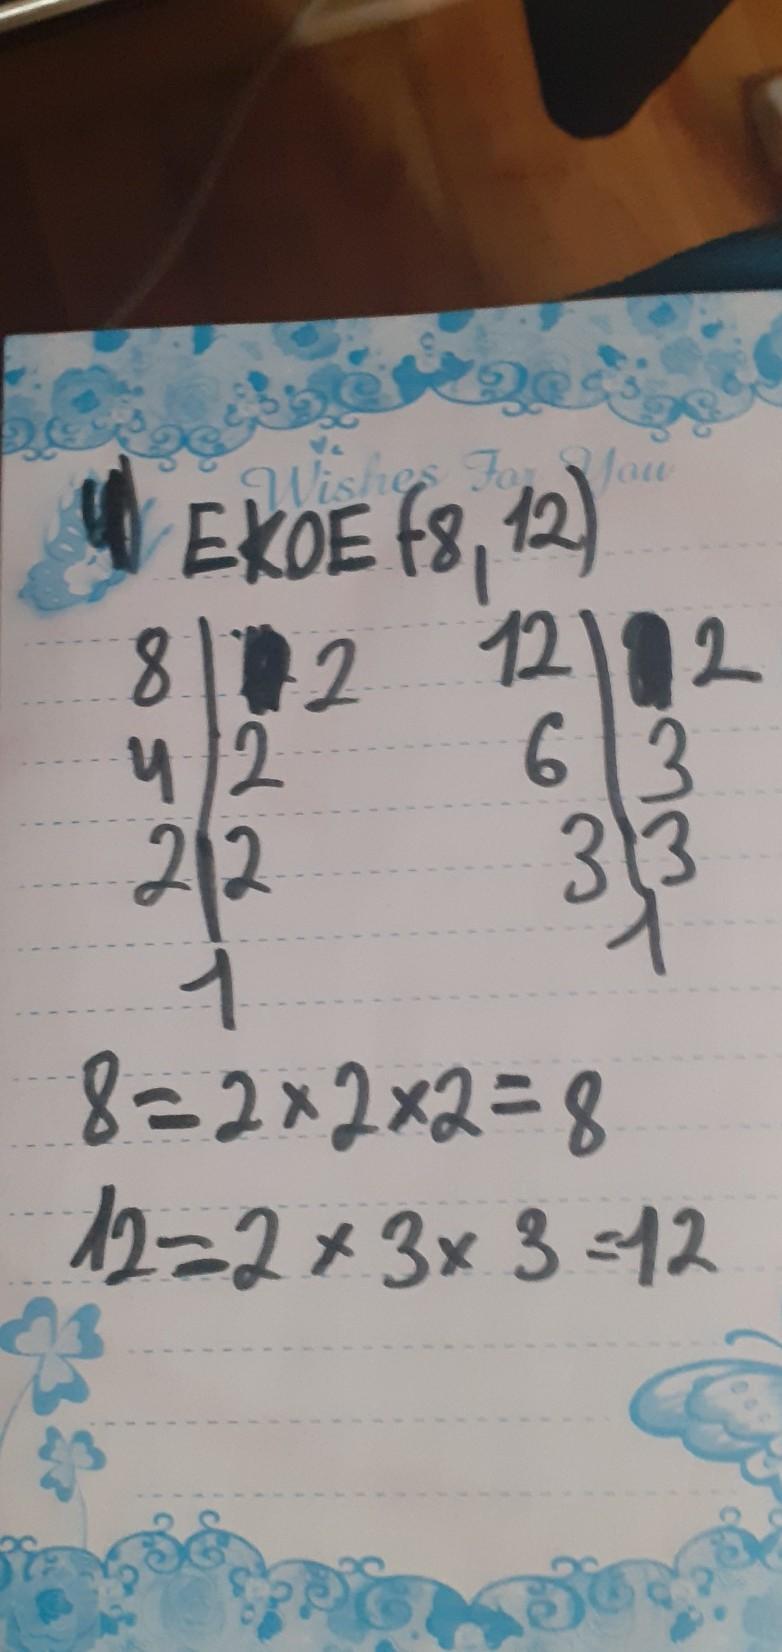 Wishes For You
EKOE (8, 12)
8 | 2 12 | 2
4 | 2 6 | 3
2 | 2 3 | 3
1 1
8 = 2 × 2 × 2 = 8
12 = 2 × 3 × 3 = 12